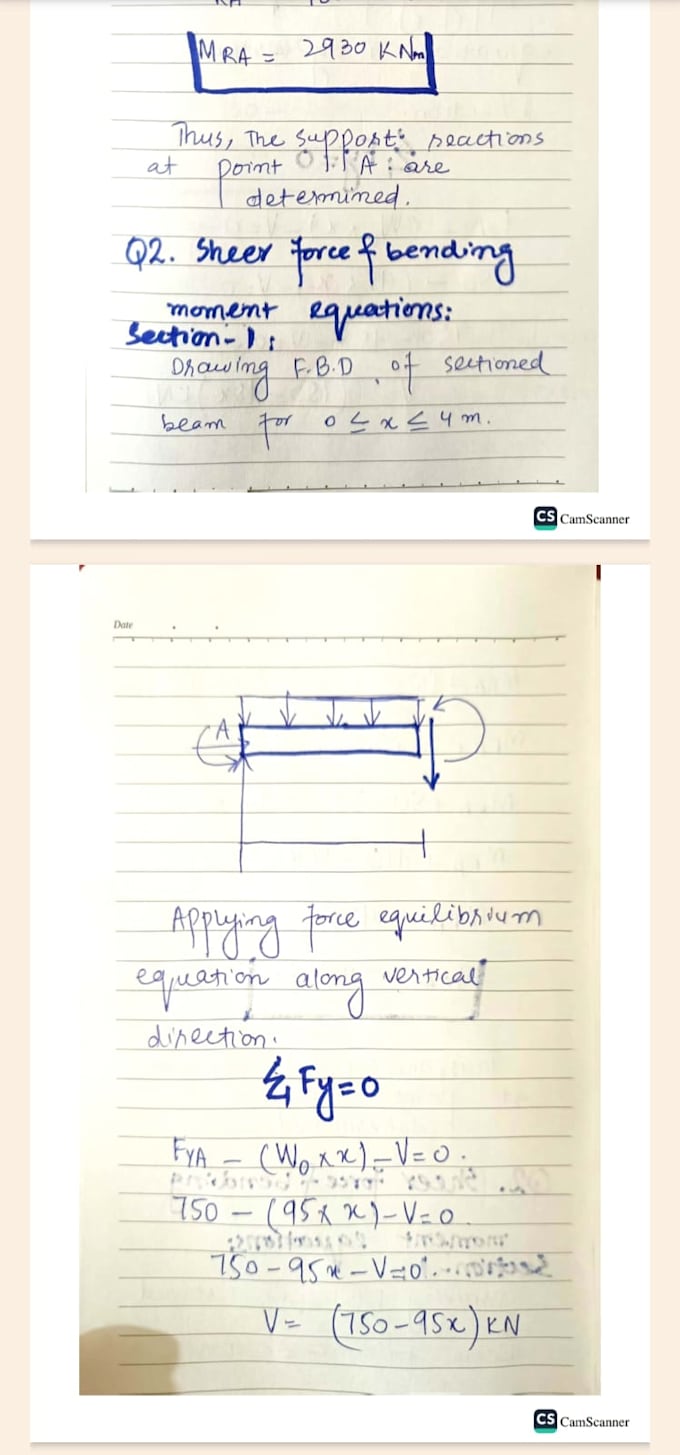 MRA = 2930 KNm
Thus, The support reactions
at point A are
determined.
Q2. Sheer force & bending
moment equations:
Section-1:
Drawing F.B.D. of sectioned
beam for 0 ≤ x ≤ 4 m.
CS CamScanner
Date
A
Applying force equilibrium
equation along vertical
direction.
Σ Fy=0
FYA - (W₀ x x) - V=0.
750 - (95 x x) - V=0
750 - 95x - V=0
V= (750-95x) KN
CS CamScanner